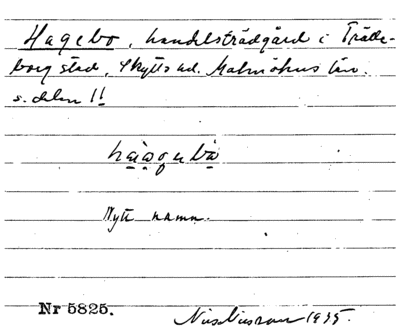 Hagebo, handelsträdgård i Trälle-
borg stad, Skytts hd. Malmöhus län.
s. delen 1!

Nytt namn.
Nr 5825. Nils Nilsson 1935